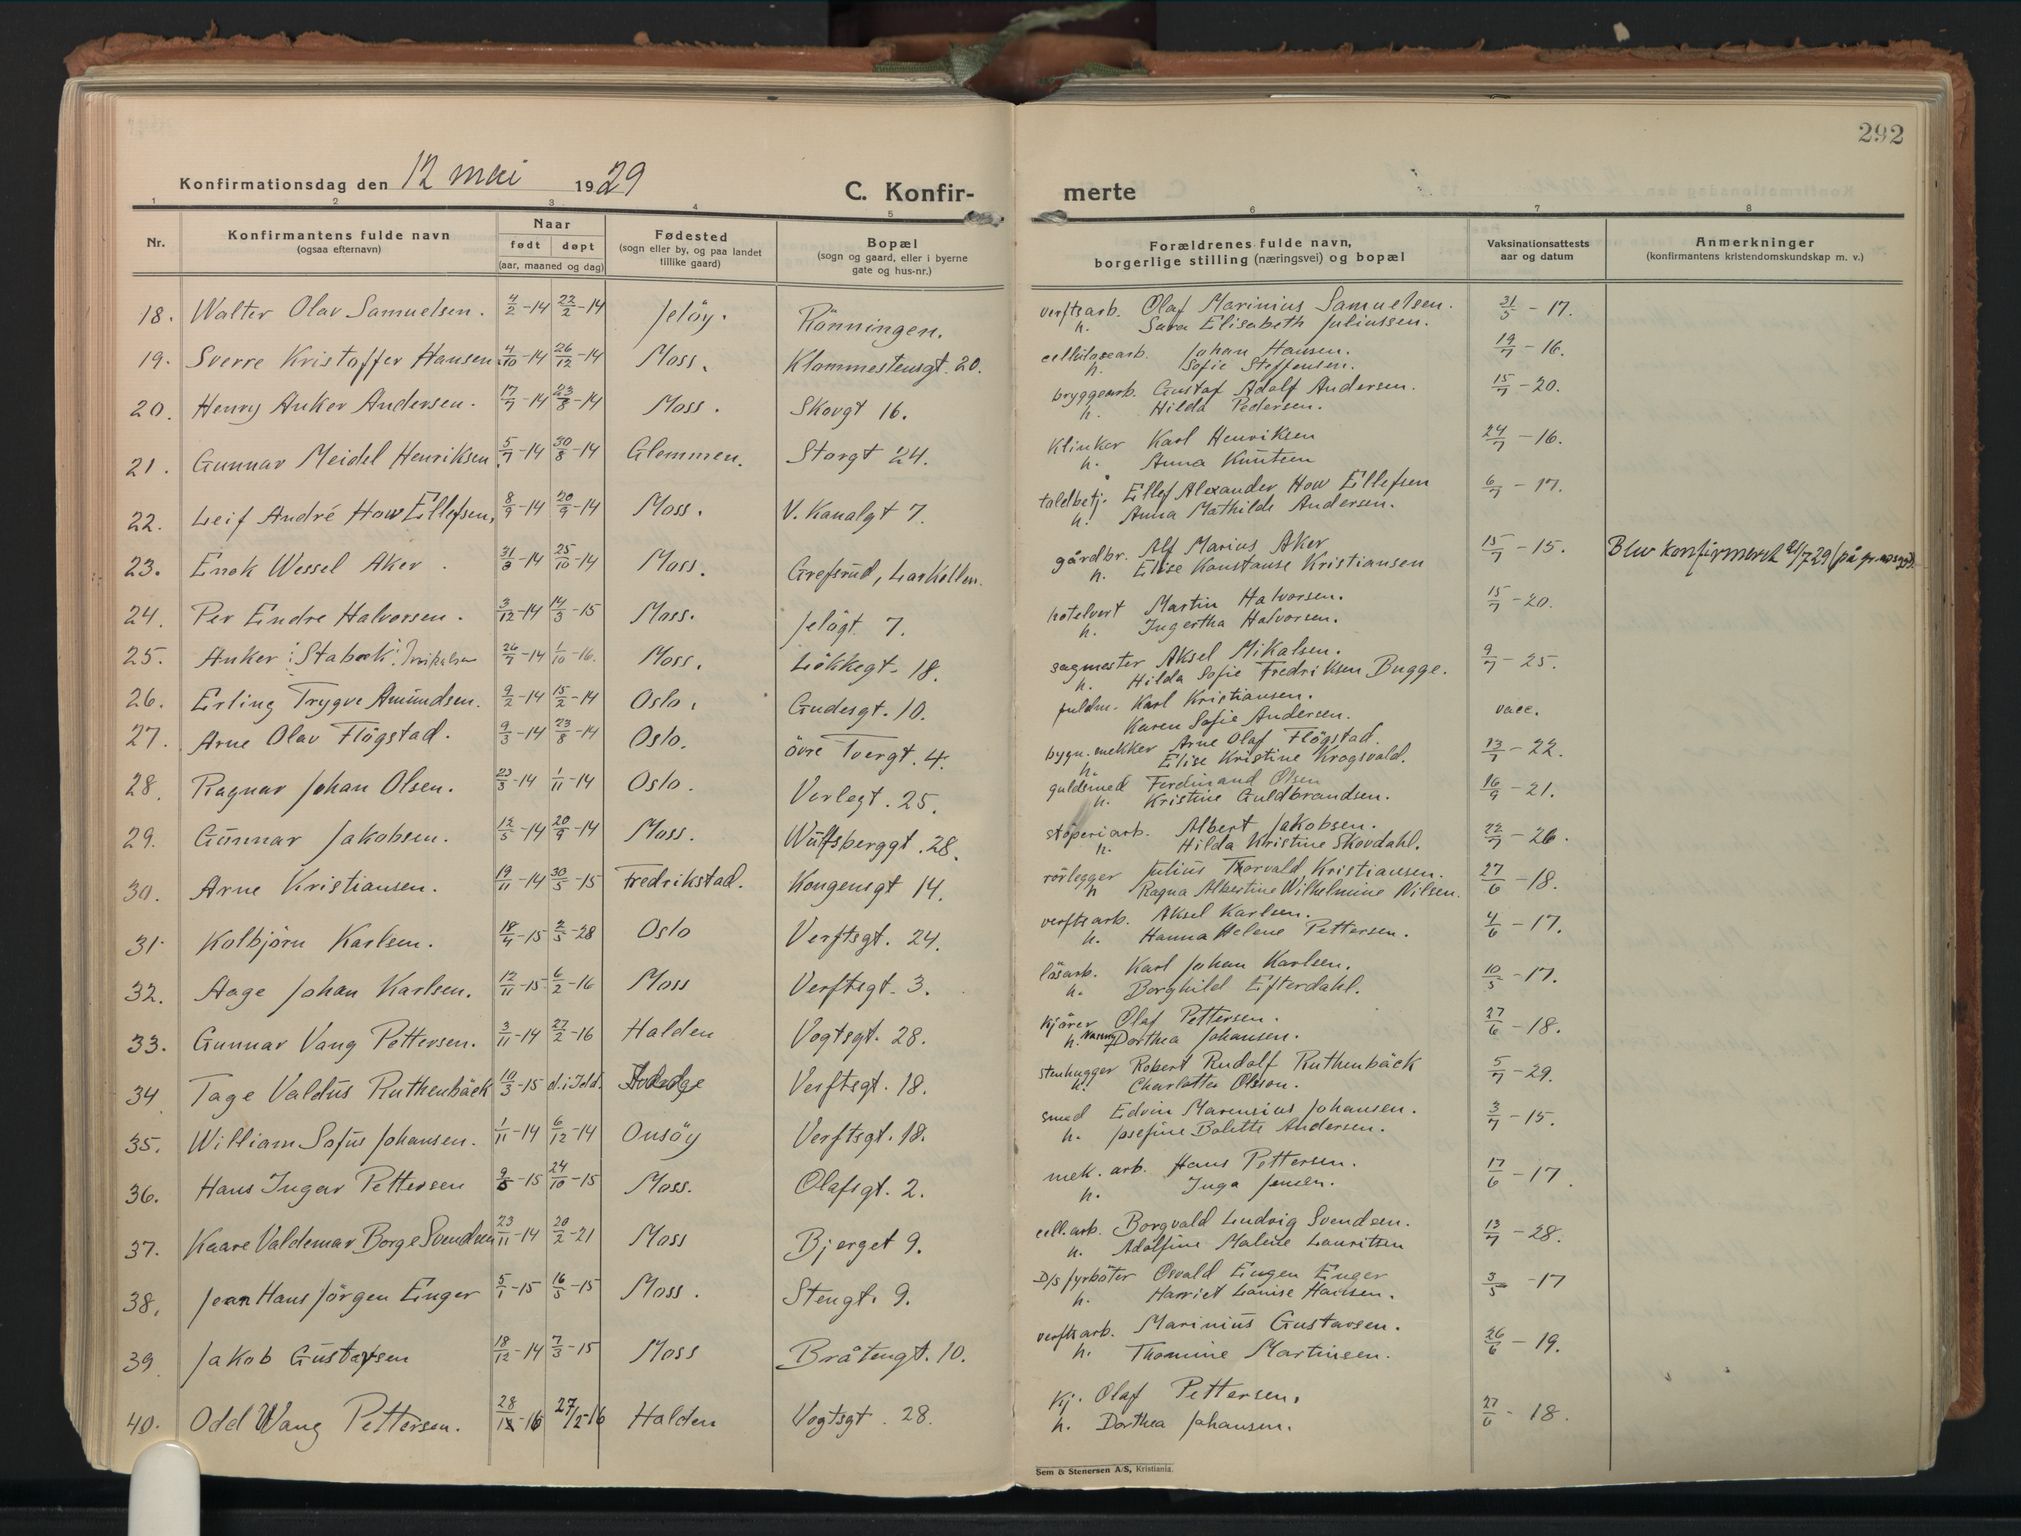 292
Konfirmationsdag den 12 mai 1929
C. Konfir- merte
1 2 3 4 5 6 7 8
Nr.
Konfirmantens fulde navn
(ogsaa efternavn)
Naar
født døpt
(aar, maaned og dag)
Fødested
(sogn eller by, og paa landet
tillike gaard)
Bopæl
(sogn og gaard, eller i byerne
gate og hus-nr.)
Forældrenes fulde navn,
borgerlige stilling (næringsvei) og bopæl
Vaksinationsattests
aar og datum
Anmerkninger
(konfirmantens kristendomskundskap m. v.)
18. Walter Olav Samuelsen. 4/2-14 22/2-14 Jelöy. Rönningen. verftsarb. Olaf Marinius Samuelsen. 31/5-17.
h. Sara Elisabeth Juliussen.
19. Sverre Kristoffer Hansen. 4/10-14 26/12-14 Moss. Klommestensgt. 20. cellulosearb. Johan Hansen. 19/7-16.
h. Sofie Steffensen.
20. Henry Anker Andersen. 17/7-14 23/8-14 Moss. Skovgt 16. bryggearb. Gustaf Adolf Andersen. 15/7-20.
h. Hilda Pedersen.
21. Gunnar Meidel Henriksen. 5/7-14 30/8-14 Glemmen. Storgt 24. Klinker Karl Henriksen 24/7-16.
h. Anna Knutsen
22. Leif André How Ellefsen, 8/9-14 20/9-14 Moss. V. Kanalgt 7. Ellef Alexander How Ellefsen 6/7-17.
h. Anna Mathilde Andersen.
23. Enok Wessel Aker. 31/8-14 25/10-14 Moss. Grefsrud, Larkollen. gårdbr. Alf Marius Aker 15/7-15. Blev konfirmeret 21/7 29
h. Elise Konstanse Kristiansen
24. Per Endre Halvorsen. 3/12-14 14/3-15 Moss. Jelögt. 7. hotelvert Martin Halvorsen. 15/7-20.
h. Ingertha Halvorsen.
25. Anker Stabæk 26/7-14 1/10-16. Moss. Lökkegt. 18. sagmester Aksel Mikalsen. 9/7-25.
h. Hilda Sofie Fredriksen Bugge.
26. Erling Trygve Amundsen. 9/2-14 15/2-14 Oslo. Gudesgt. 10. fuldm. Karl Kristiansen. vacc.
Karen Sofie Andersen.
27. Arne Olav Flögstad. 9/3-14 23/8-14 Oslo. övre Tvergt. 4. Arne Olaf Flögstad. 13/7-22.
h. Elise Kristine Krogsvold.
28. Ragnar Johan Olsen. 23/3-14 1/11-14 Oslo. Verlegt. 25. guldsmed Ferdinand Olsen 16/9-21.
h. Kristine Guldbrandsen.
29. Gunnar Jakobsen. 12/5-14 20/9-14 Moss. Wulfsberggt. 28. stöperiarb. Albert Jakobsen. 22/7-26.
h. Hilda Kristine Skovdahl.
30. Arne Kristiansen. 19/11-14 30/5-15 Fredrikstad. Kongensgt 14. rörlegger Julius Thorvald Kristiansen. 27/6-18.
h Ragna Albertine Wilhelmine Nilsen.
31. Kolbjörn Karlsen. 18/4-15 2/5-28 Oslo Verftsgt. 24. verftsarb. Aksel Karlsen. 4/6-17.
h. Hanna Helene Pettersen.
32. Aage Johan Karlsen. 12/11-15 6/2-16 Moss Verftsgt. 3. lösarb. Karl Johan Karlsen. 10/5-17.
h. Borghild Efterdahl.
33. Gunnar Vang Pettersen. 3/11-14 27/2-16 Halden Vogtsgt. 28. Kjörer Olaf Pettersen. 27/6-18.
h. Dorthea Johansen.
34. Tage Valdus Ruthenbäck 10/3-15 d. i Idd. Verftsgt. 18. stenhugger Robert Rudolf Ruthenbäck 5/7-29.
h. Charlotta Olsson.
35. William Sofus Johansen. 1/11-14 6/12-14 Onsöy Verftsgt. 18. smed Edvin Marensius Johansen. 3/7-15.
h. Josefine Bolette Andersen.
36. Hans Ingar Pettersen 9/5-15 24/10-15 Moss. Olafsgt. 2. mek. arb. Hans Pettersen. 17/6-17.
h. Inga Jensen.
37. Kaare Valdemar Borge Svendsen 23/11-14 20/2-21 Moss Bjerget 9. cell. arb. Borgvald Ludvig Svendsen. 13/7-28.
h. Adolfine Malene Lauritsen
38. Jean Hans Jörgen Enger 5/1-15 16/5-15 Moss. Stengt. 9. D/S fyrböter Osvald Eugen Enger 3/5-17
h. Harriet Louise Hansen.
39. Jakob Gustavsen 18/12-14 7/3-15 Moss Bråtengt. 10. verftsarb. Marinius Gustavsen. 26/6-19.
h. Thomine Martinsen.
40. Odd Wang Pettersen. 28/12-16 27/2-16 Halden Vogtsgt. 28. Kj. Olaf Pettersen. 27/6-18.
h. Dorthea Johansen.
Sem & Stenersen A/S, Kristiania.